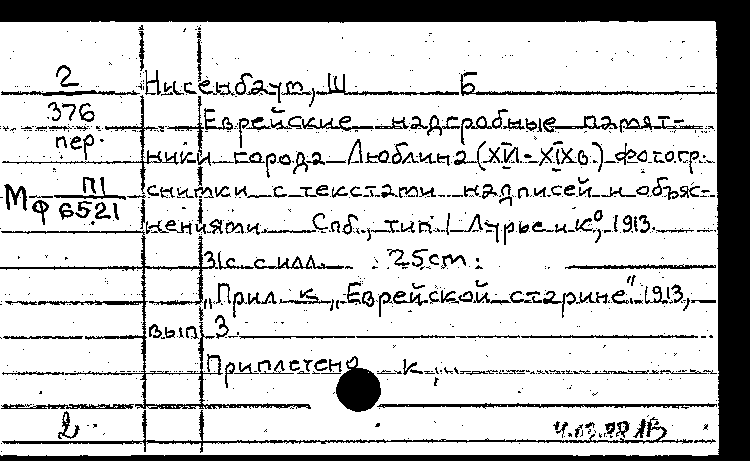 2
376
пер.
П1
Мф 6521
Нисенбаум, Ш Б
Еврейские надгробные памят-
ники города Люблина (XVI-XIXв.) фотогр.
снимки с текстами надписей и объяс-
нениями. Спб., тип. Лурье и К°, 1913.
31с. с илл. 25cm.
"Прил. к „Еврейской старине" 1913,
вып 3.
Приплетено к ...
2